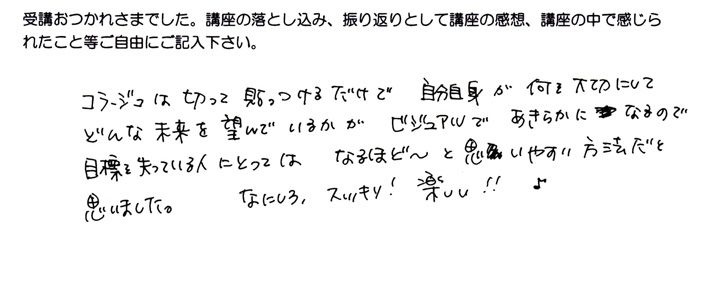 受講おつかれさまでした。講座の落とし込み、振り返りとして講座の感想、講座の中で感じら
れたこと等ご自由にご記入下さい。
コラージュは切って貼っつけるだけで 自分自身が何を大切にして
どんな未来を望んでいるかが ビジュアルで あきらかになるので
目標を失っている人にとっては なるほど〜と思いやすい方法だと
思いました。 なにしろ、スッキリ! 楽しい!! ♪